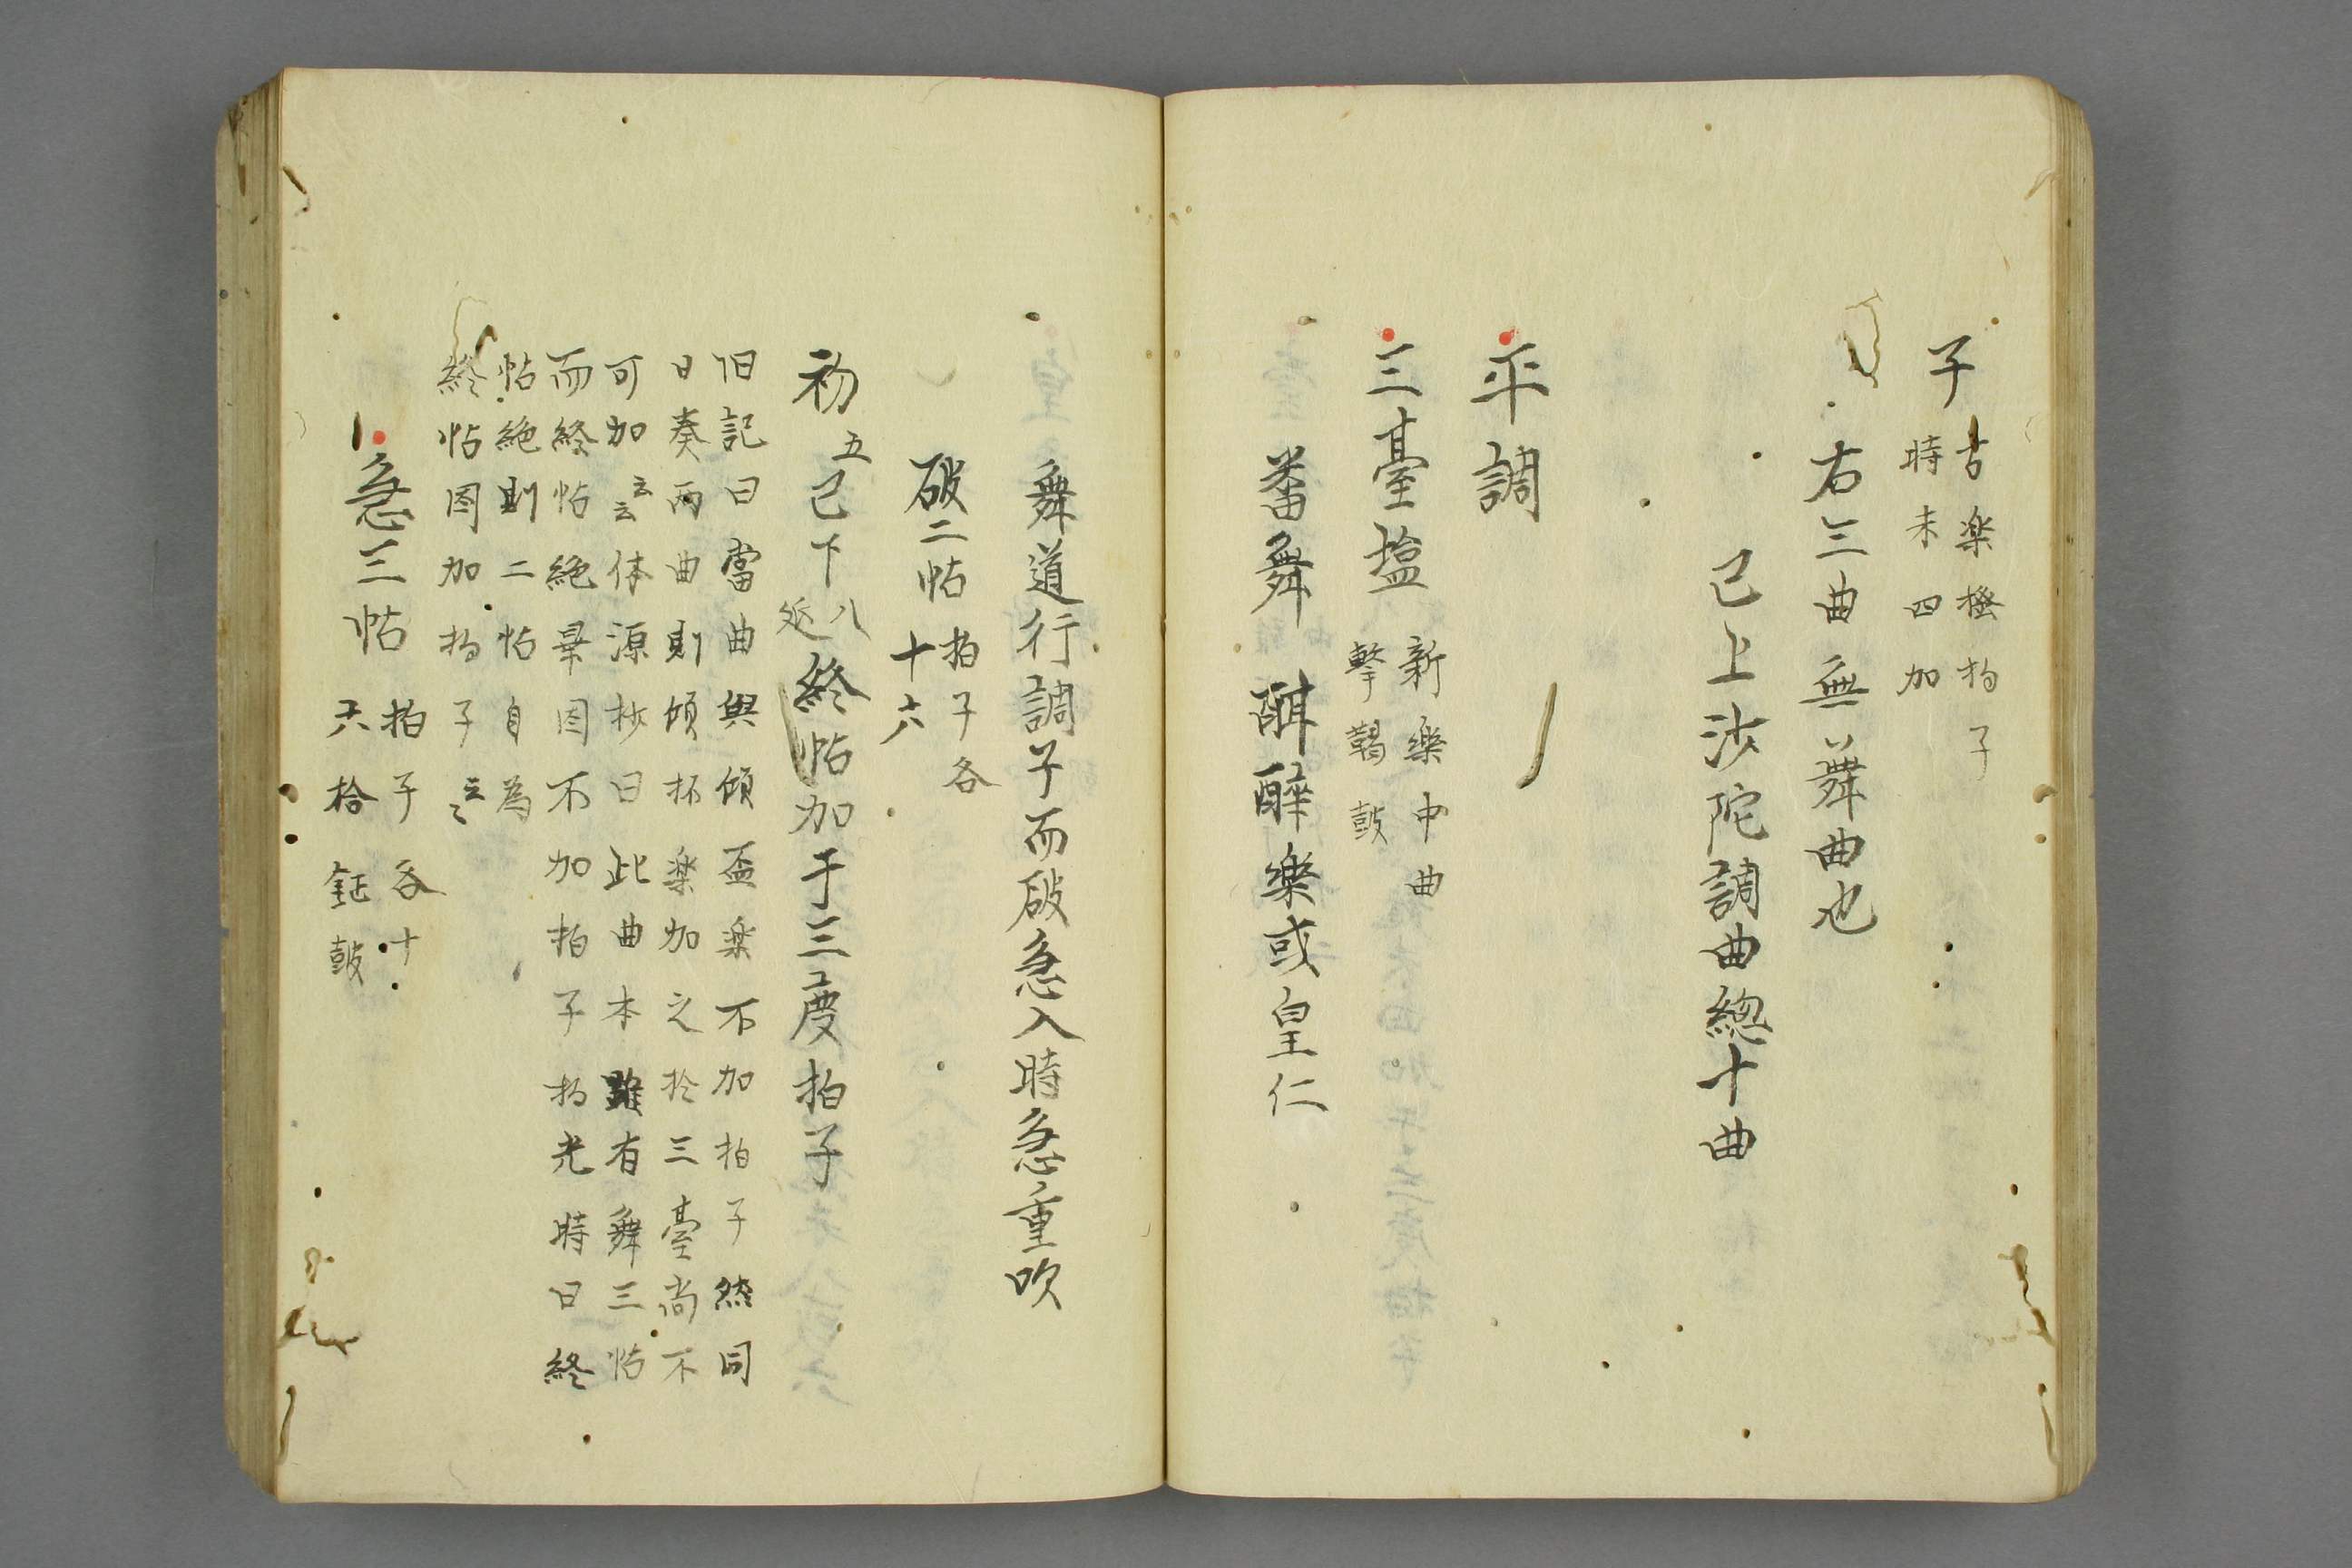 子
古楽搔拍子
時末四加
右三曲無舞曲也
已上沙陀調曲總十曲
平調
三臺塩
新樂中曲
擊鞨鼓
番舞 酣醉樂或皇仁
舞道行調子而破急入時急重吹
破二帖
拍子各
十六
初五已下八延終帖加于三度拍子
旧記曰當曲與傾盃楽不加拍子然同
日奏兩曲則傾坏楽加之於三臺尚不
可加云云体源抄曰此曲本雖有舞三帖
而終帖絶畢因不加拍子拍光時曰終
帖絶則二帖自為
終帖因加拍子云々
急三帖
拍子各十
六拾鉦鼓